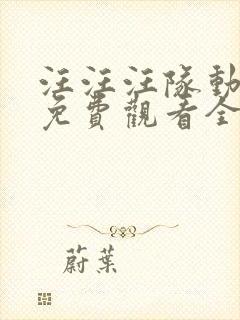 汪汪汪隊動
免費觀看全
蔚葉